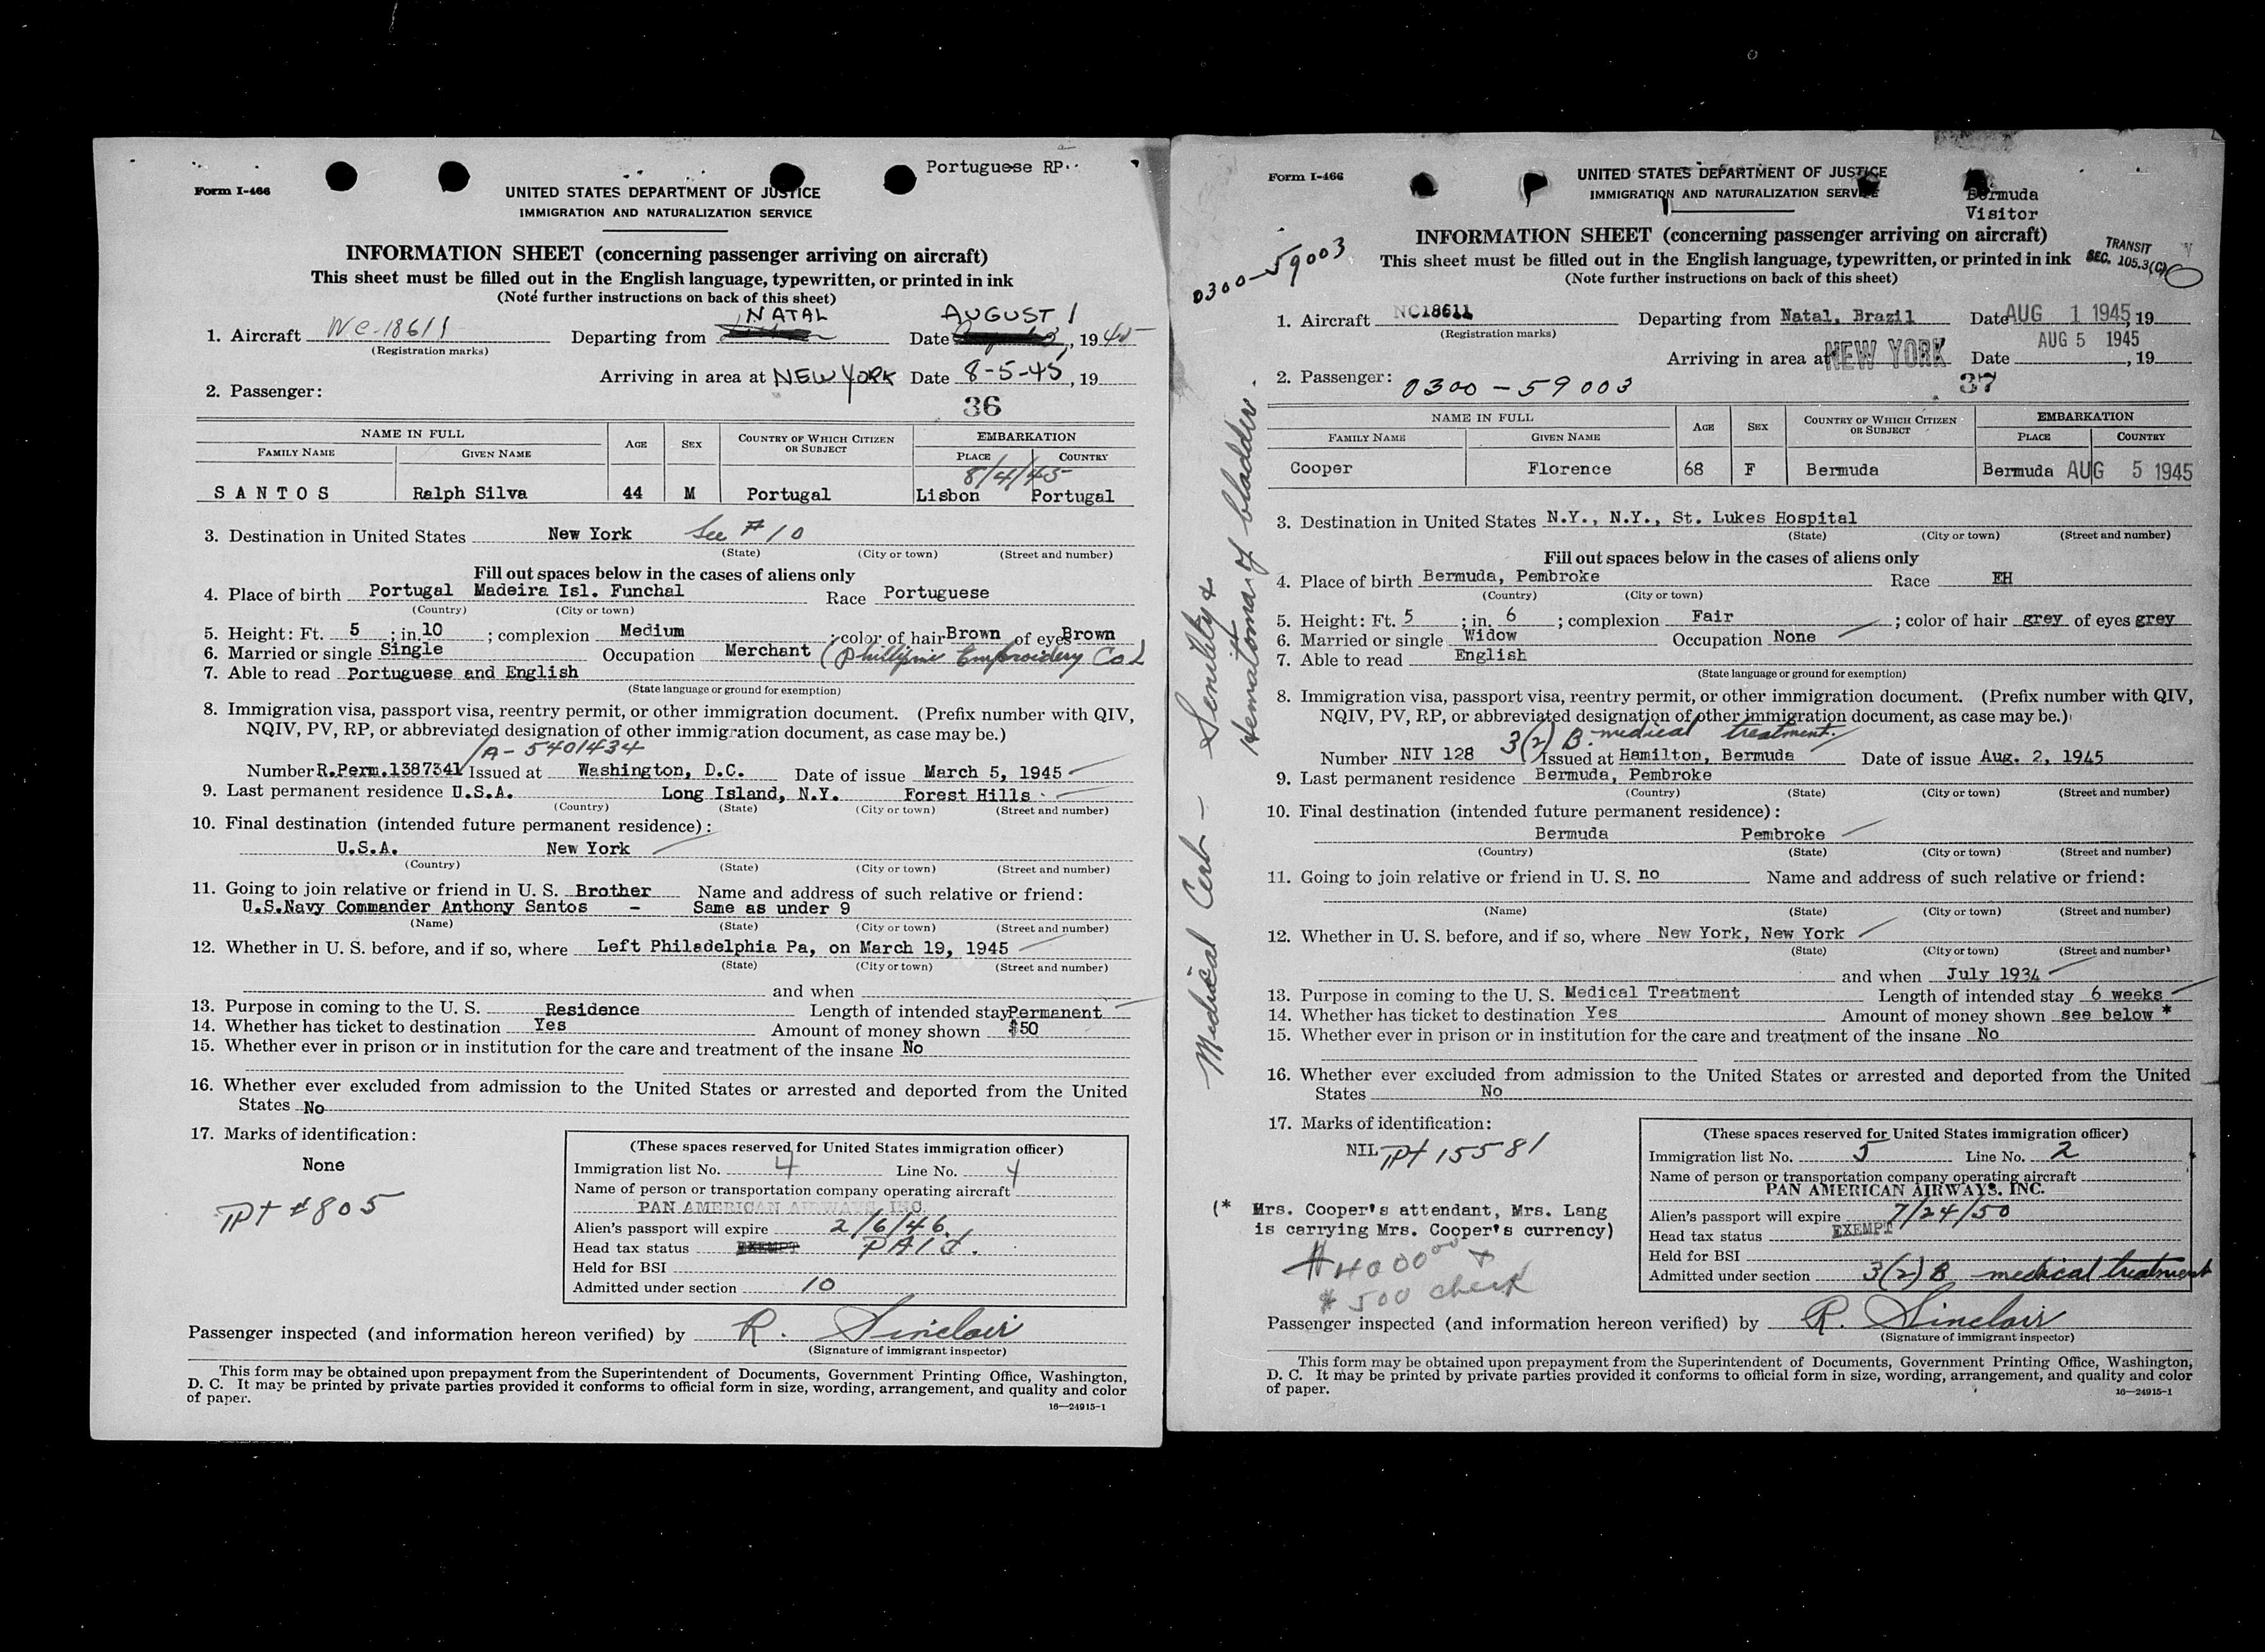 Portuguese RP.
Form I-466
UNITED STATES DEPARTMENT OF JUSTICE
IMMIGRATION AND NATURALIZATION SERVICE
INFORMATION SHEET (concerning passenger arriving on aircraft)
This sheet must be filled out in the English language, typewritten, or printed in ink
(Note further instructions on back of this sheet)
NATAL AUGUST 1
1. Aircraft N.C-18611 Departing from Date , 1945
(Registration marks)
Arriving in area at NEW YORK Date 8-5-45, 19
2. Passenger:
36
NAME IN FULL AGE SEX COUNTRY OF WHICH CITIZEN OR SUBJECT EMBARKATION
FAMILY NAME GIVEN NAME PLACE COUNTRY
8/4/45
SANTOS Ralph Silva 44 M Portugal Lisbon Portugal
3. Destination in United States New York See #10
(State) (City or town) (Street and number)
Fill out spaces below in the cases of aliens only
4. Place of birth Portugal Madeira Isl. Funchal Race Portuguese
(Country) (City or town)
5. Height: Ft. 5 ; in. 10 ; complexion Medium ; color of hair Brown of eyes Brown
6. Married or single Single Occupation Merchant (Phillipine Embroidery Co)
7. Able to read Portuguese and English
(State language or ground for exemption)
8. Immigration visa, passport visa, reentry permit, or other immigration document. (Prefix number with QIV,
NQIV, PV, RP, or abbreviated designation of other immigration document, as case may be.)
/A-5401434
Number R.Perm.1387341 Issued at Washington, D.C. Date of issue March 5, 1945
9. Last permanent residence U.S.A. Long Island, N.Y. Forest Hills
(Country) (State) (City or town) (Street and number)
10. Final destination (intended future permanent residence):
U.S.A. New York
(Country) (State) (City or town) (Street and number)
11. Going to join relative or friend in U. S. Brother Name and address of such relative or friend:
U.S.Navy Commander Anthony Santos - Same as under 9
(Name) (State) (City or town) (Street and number)
12. Whether in U. S. before, and if so, where Left Philadelphia Pa, on March 19, 1945
(State) (City or town) (Street and number)
and when
13. Purpose in coming to the U. S. Residence Length of intended stay Permanent
14. Whether has ticket to destination Yes Amount of money shown $50
15. Whether ever in prison or in institution for the care and treatment of the insane No
16. Whether ever excluded from admission to the United States or arrested and deported from the United
States No
17. Marks of identification:
None
TPT #805
(These spaces reserved for United States immigration officer)
Immigration list No. 4 Line No. 4
Name of person or transportation company operating aircraft
PAN AMERICAN AIRWAYS, INC.
Alien's passport will expire 2/6/46.
Head tax status EXEMPT PAId.
Held for BSI
Admitted under section 10
Passenger inspected (and information hereon verified) by R. Sinclair
(Signature of immigrant inspector)
This form may be obtained upon prepayment from the Superintendent of Documents, Government Printing Office, Washington,
D. C. It may be printed by private parties provided it conforms to official form in size, wording, arrangement, and quality and color
of paper.
16—24915-1
Form I-466
UNITED STATES DEPARTMENT OF JUSTICE
IMMIGRATION AND NATURALIZATION SERVICE
Bermuda
Visitor
INFORMATION SHEET (concerning passenger arriving on aircraft)
TRANSIT
SEC. 105.3(C)
0300-59003
This sheet must be filled out in the English language, typewritten, or printed in ink
(Note further instructions on back of this sheet)
1. Aircraft NC18611 Departing from Natal, Brazil Date AUG 1 1945, 19
(Registration marks)
AUG 5 1945
Arriving in area at NEW YORK Date , 19
2. Passenger: 0300-59003
37
NAME IN FULL AGE SEX COUNTRY OF WHICH CITIZEN OR SUBJECT EMBARKATION
FAMILY NAME GIVEN NAME PLACE COUNTRY
Cooper Florence 68 F Bermuda Bermuda AUG 5 1945
3. Destination in United States N.Y., N.Y., St. Lukes Hospital
(State) (City or town) (Street and number)
Fill out spaces below in the cases of aliens only
4. Place of birth Bermuda, Pembroke Race EH
(Country) (City or town)
5. Height: Ft. 5 ; in. 6 ; complexion Fair ; color of hair grey of eyes grey
6. Married or single Widow Occupation None
7. Able to read English
(State language or ground for exemption)
8. Immigration visa, passport visa, reentry permit, or other immigration document. (Prefix number with QIV,
NQIV, PV, RP, or abbreviated designation of other immigration document, as case may be.)
3(2) B. medical treatment.
Number NIV 128 Issued at Hamilton, Bermuda Date of issue Aug. 2, 1945
9. Last permanent residence Bermuda, Pembroke
(Country) (State) (City or town) (Street and number)
10. Final destination (intended future permanent residence):
Bermuda Pembroke
(Country) (State) (City or town) (Street and number)
11. Going to join relative or friend in U. S. no Name and address of such relative or friend:
(Name) (State) (City or town) (Street and number)
12. Whether in U. S. before, and if so, where New York, New York
(State) (City or town) (Street and number)
and when July 1934
13. Purpose in coming to the U. S. Medical Treatment Length of intended stay 6 weeks
14. Whether has ticket to destination Yes Amount of money shown see below *
15. Whether ever in prison or in institution for the care and treatment of the insane No
16. Whether ever excluded from admission to the United States or arrested and deported from the United
States No
17. Marks of identification:
NIL TPT 15581
(* Mrs. Cooper's attendant, Mrs. Lang
is carrying Mrs. Cooper's currency)
$4000.00 +
$500 check
(These spaces reserved for United States immigration officer)
Immigration list No. 5 Line No. 2
Name of person or transportation company operating aircraft
PAN AMERICAN AIRWAYS, INC.
Alien's passport will expire 7/24/50
Head tax status EXEMPT
Held for BSI
Admitted under section 3(2) B medical treatment
Passenger inspected (and information hereon verified) by R. Sinclair
(Signature of immigrant inspector)
This form may be obtained upon prepayment from the Superintendent of Documents, Government Printing Office, Washington,
D. C. It may be printed by private parties provided it conforms to official form in size, wording, arrangement, and quality and color
of paper.
16—24915-1
Medical Cert - Senility &
Hematoma of bladder.